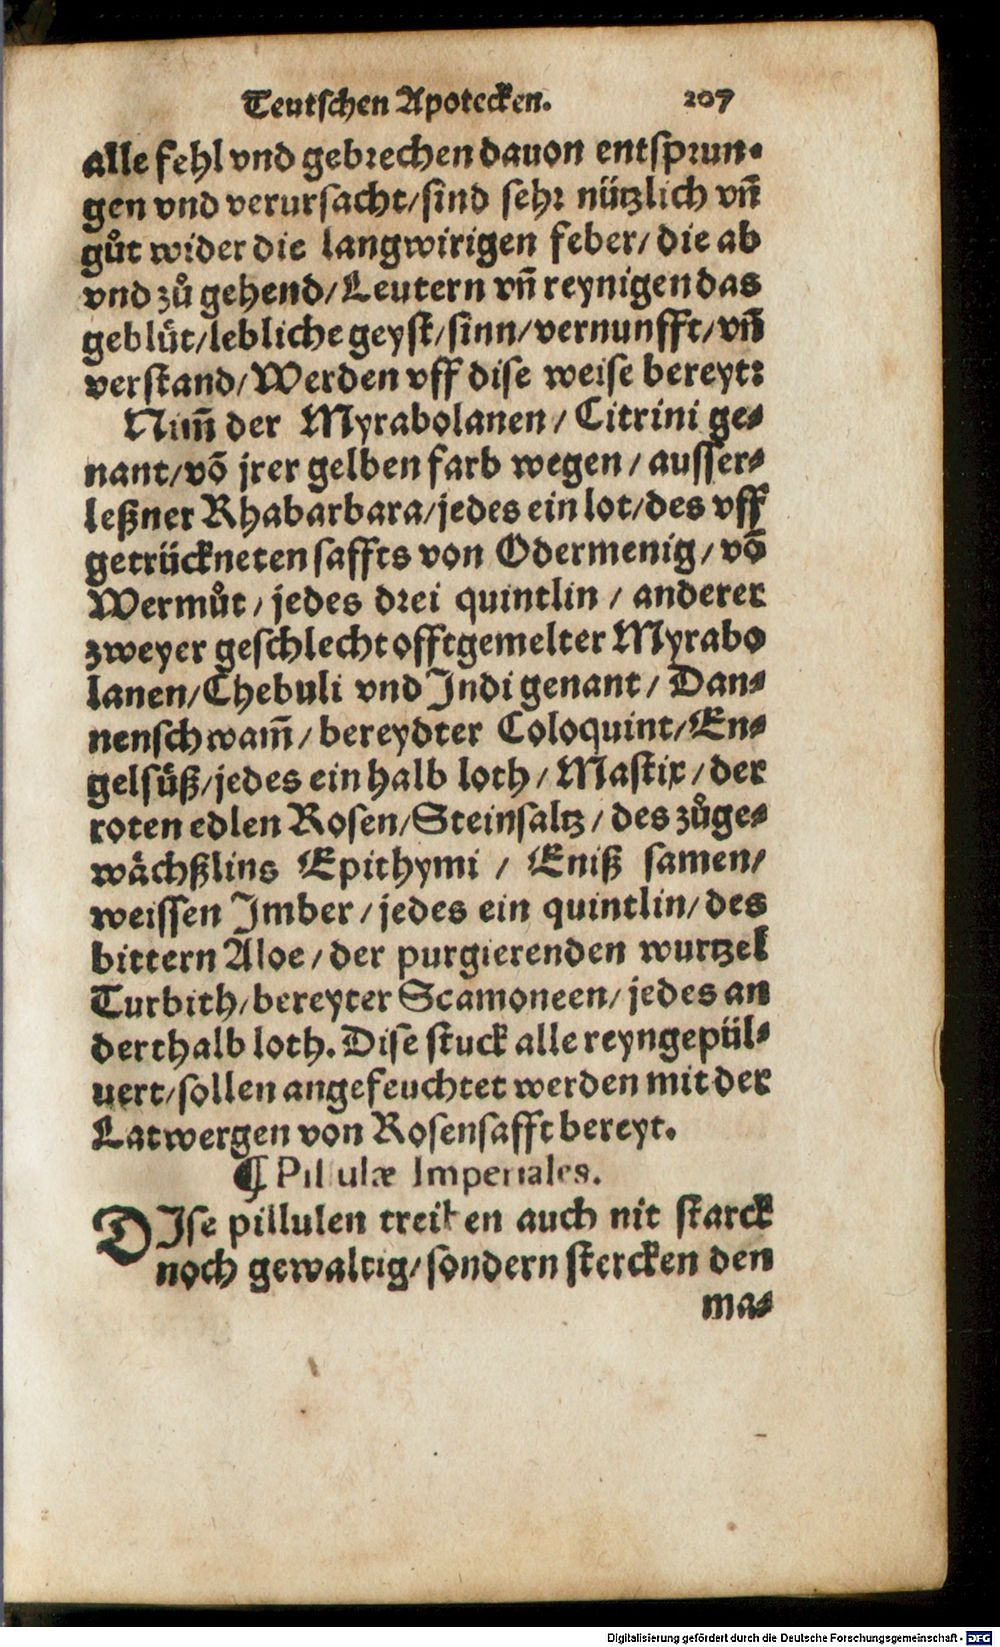 Teutschen Apotecken. 207
alle fehl vnd gebrechen dauon entsprun-
gen vnd verursacht/sind sehr nützlich vñ
gůt wider die langwirigen feber/die ab
vnd zů gehend/Leutern vñ reynigen das
geblůt/lebliche geyst/sinn/vernunfft/vñ
verstand/Werden vff dise weise bereyt:
Nim̃ der Myrabolanen/Citrini ge-
nant/võ jrer gelben farb wegen/ausser-
leßner Rhabarbara/jedes ein lot/des vff
getrückneten saffts von Odermenig/võ
Wermůt/jedes drei quintlin/anderer
zweyer geschlecht offtgemelter Myrabo
lanen/Chebuli vnd Jndi genant/Dan-
nenschwam̃/bereydter Coloquint/En-
gelsůß/jedes ein halb loth/Mastix/der
roten edlen Rosen/Steinsaltz/des zůge-
wåchßlins Epithymi/Eniß samen/
weissen Jmber/jedes ein quintlin/des
bittern Aloe/der purgierenden wurtzel
Turbith/bereyter Scamoneen/jedes an
derthalb loth. Dise stuck alle reyngepül-
uert/sollen angefeuchtet werden mit der
Latwergen von Rosensafft bereyt.
¶ Pillulæ Imperiales.
DJse pillulen treiben auch nit starck
noch gewaltig/sondern stercken den
ma-
Digitalisierung gefördert durch die Deutsche Forschungsgemeinschaft - DFG